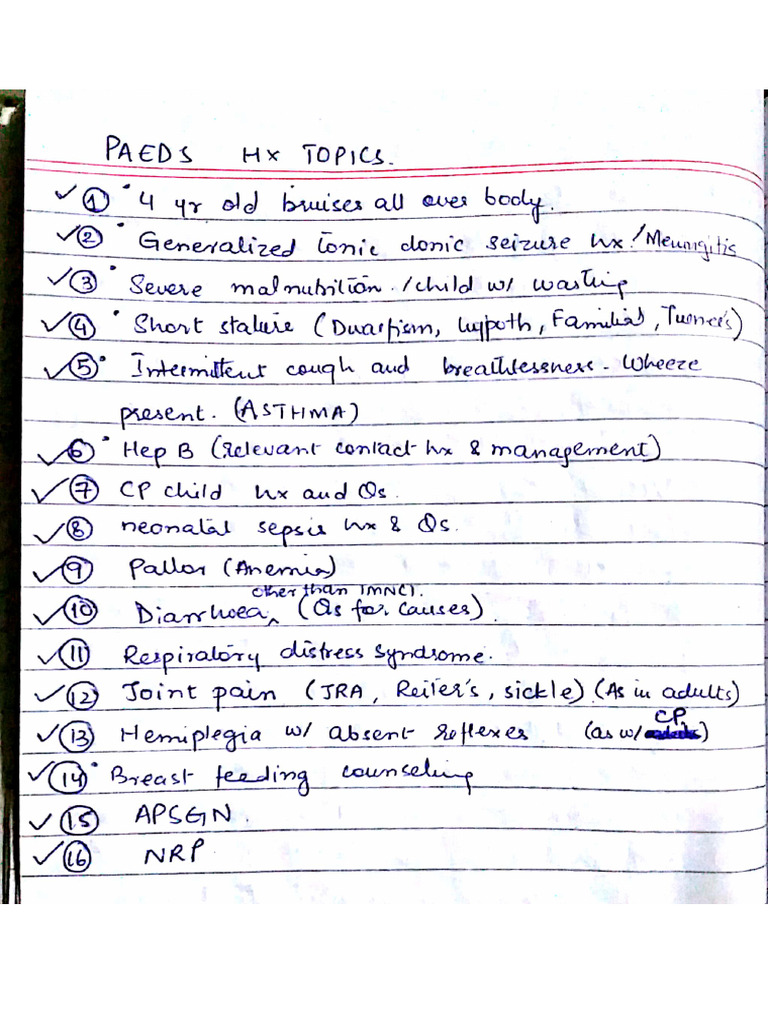 PAEDS HX TOPICS.
✓ ① • 4 yr old bruises all over body.
✓ ② • Generalized tonic clonic seizure hx! / Meningitis
✓ ③ • Severe malnutrition. / child w/ wasting
✓ ④ • Short stature (Dwarfism, hypoth, Familial, Turner's)
✓ ⑤ • Intermittent cough and breathlessness. Wheeze
present. (ASTHMA)
✓ ⑥ • Hep B (relevant contact hx & management)
✓ ⑦ CP child hx and Qs.
✓ ⑧ neonatal sepsis hx & Qs.
✓ ⑨ Pallor (Anemia)
other than IMNCI.
✓ ⑩ Diarrhoea ‸ (Qs for causes).
✓ ⑪ Respiratory distress syndrome.
✓ ⑫ Joint pain (JRA, Reiter's, sickle) (As in adults)
✓ ⑬ Hemiplegia w/ absent reflexes. (as w/ CP)
✓ ⑭ • Breast feeding counseling
✓ ⑮ APSGN.
✓ ⑯ NRP